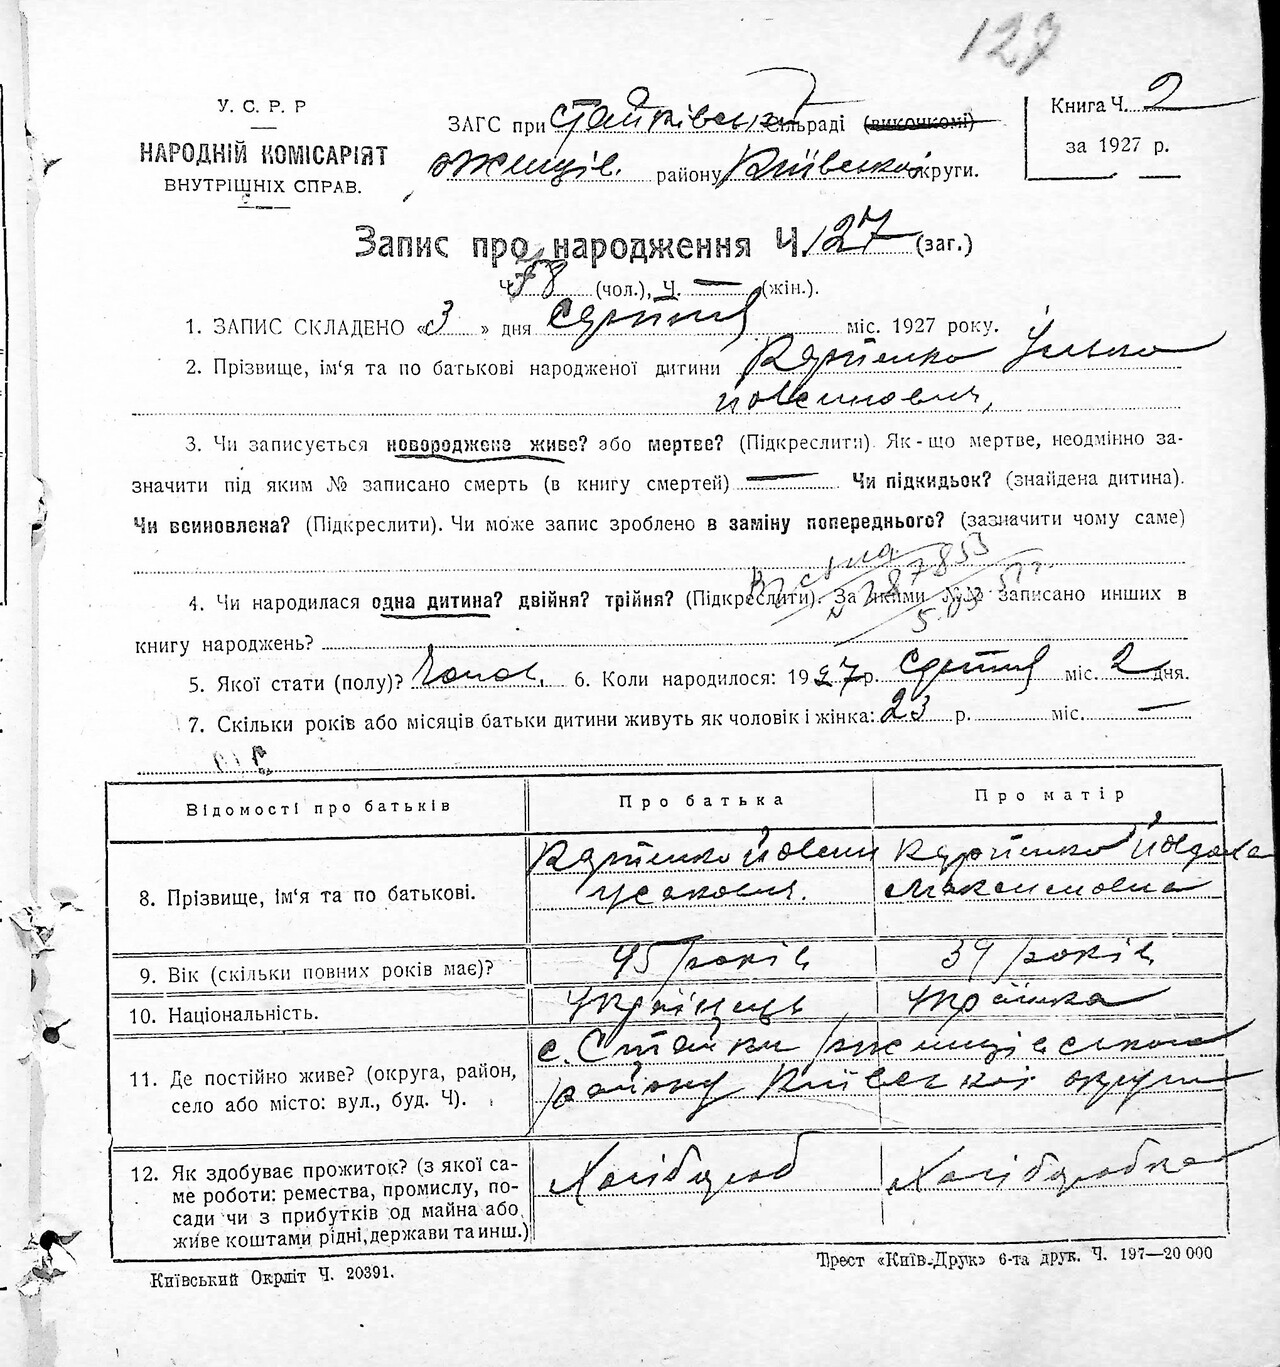 127
У. С. Р. Р
НАРОДНІЙ КОМІСАРІЯТ
ВНУТРІШНІХ СПРАВ.
ЗАГС при Стайківськ. сільраді (виконкомі)
ржищів. району Київської округи.
Книга Ч. 2
за 1927 р.
Запис про народження Ч. 127 (заг.)
Ч. 58 (чол.), Ч. — (жін.).
1. ЗАПИС СКЛАДЕНО «3» дня Серпня міс. 1927 року.
2. Прізвище, ім'я та по батькові народженої дитини Карпенко Ілько
йовсипович,
3. Чи записується новороджене живе? або мертве? (Підкреслити). Як-що мертве, неодмінно за-
значити під яким № записано смерть (в книгу смертей) — Чи підкидьок? (знайдена дитина).
Чи всиновлена? (Підкреслити). Чи може запис зроблено в заміну попереднього? (зазначити чому саме)
4. Чи народилася одна дитина? двійня? трійня? (Підкреслити). За якими №№ записано инших в
книгу народжень?
5. Якої стати (полу)? Чолов. 6. Коли народилося: 1927 р. Серпня міс. 2 дня.
7. Скільки років або місяців батьки дитини живуть як чоловік і жінка: 23 р. міс. —
Відомості про батьків
Про батька
Про матір
8. Прізвище, ім'я та по батькові.
Карпенко Йовсип
Карпенко Йовдоха
Максимовна
9. Вік (скільки повних років має)?
45 років
39 років
10. Національність.
Українець
Українка
11. Де постійно живе? (округа, район,
село або місто: вул., буд. Ч).
с. Стайки ржищівського
району Київської округи
12. Як здобуває прожиток? (з якої са-
ме роботи: ремества, промислу, по-
сади чи з прибутків од майна або
живе коштами рідні, держави та инш.)
Хлібороб
Хліборобка
Київський Окрліт Ч. 20391.
Трест «Київ-Друк» 6-та друк. Ч. 197—20 000